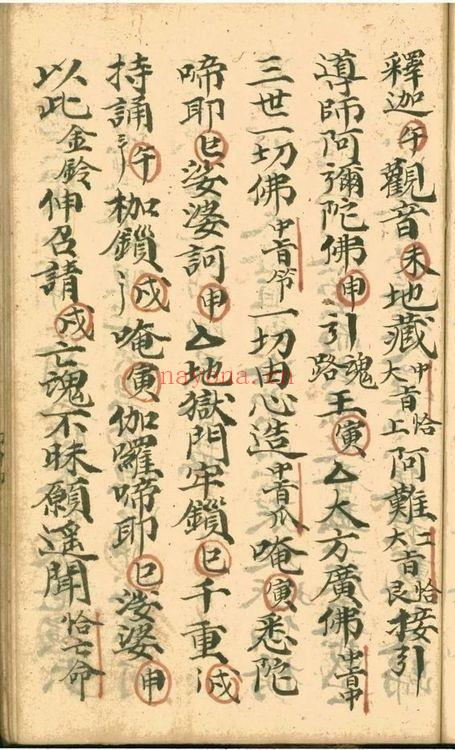 釋迦午觀音未地藏中恰大百上阿難二恰大百艮接引
導師阿彌陀佛申引魂路王寅厶大方廣佛中百中
三世一切佛中百一切由心造中百唵寅悉陀
啼耶巳娑婆訶申厶地獄門牢鎖巳千重戍
持誦午枷鎖戍唵寅伽羅啼耶巳娑婆申
以此金鈴伸召請戍亡魂不昧願遥聞恰命